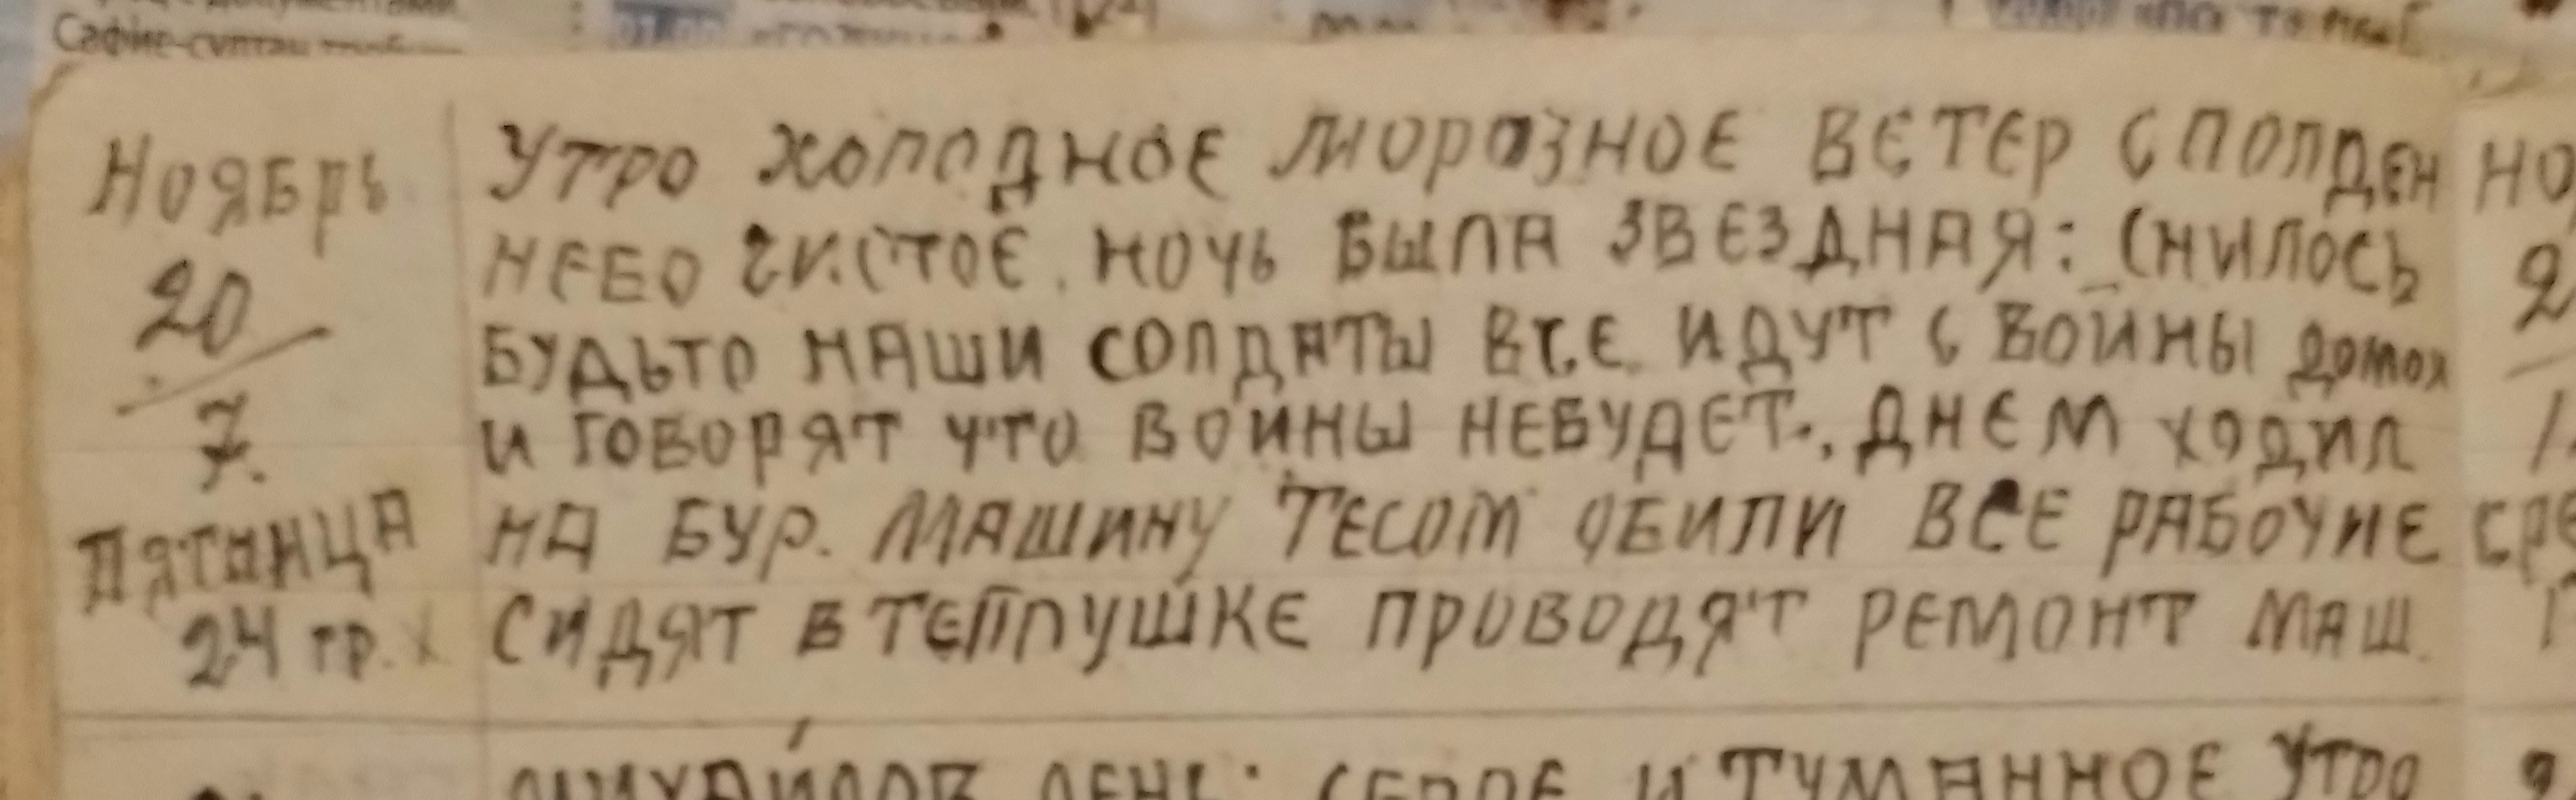 Сафие-султан
Ноябрь
20
7.
пятница
24 гр.
Утро холодное морозное ветер с полден
небо чистое. ночь была звездная: снилось
будьто наши солдаты все идут с войны домой
и говорят что войны небудет., днем ходил
на бур. машину тесом обили все рабочие
сидят в теплушке проводят ремонт маш.
михайлов день: серое и туманное утро